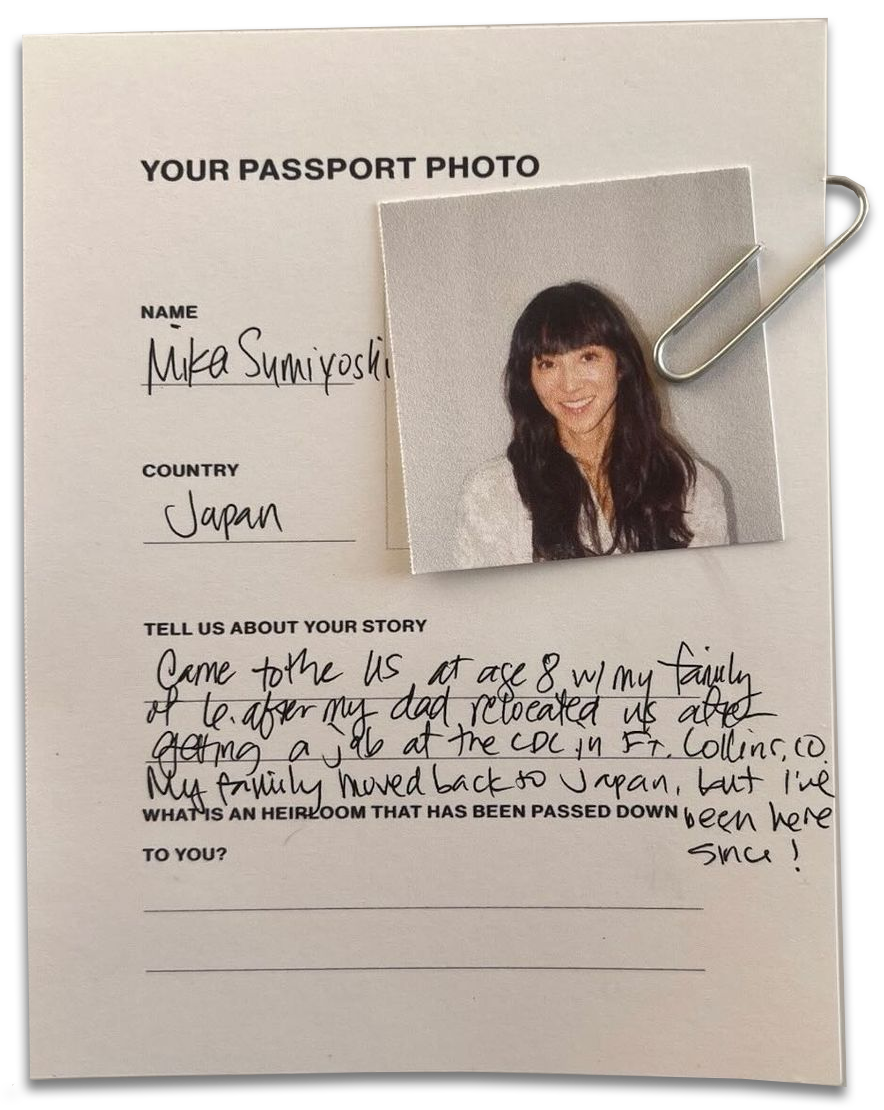 YOUR PASSPORT PHOTO
NAME
Mika Sumiyoshi
COUNTRY
Japan
TELL US ABOUT YOUR STORY
Came to the US at age 8 w/ my family
of 6. after my dad relocated us after
getting a job at the CDC in Ft. Collins, CO.
My family moved back to Japan, but I've
been here
since!
WHAT IS AN HEIRLOOM THAT HAS BEEN PASSED DOWN
TO YOU?